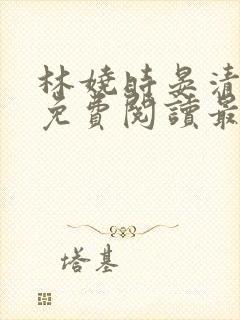 林娆時晏清
免費閱讀最
塔基